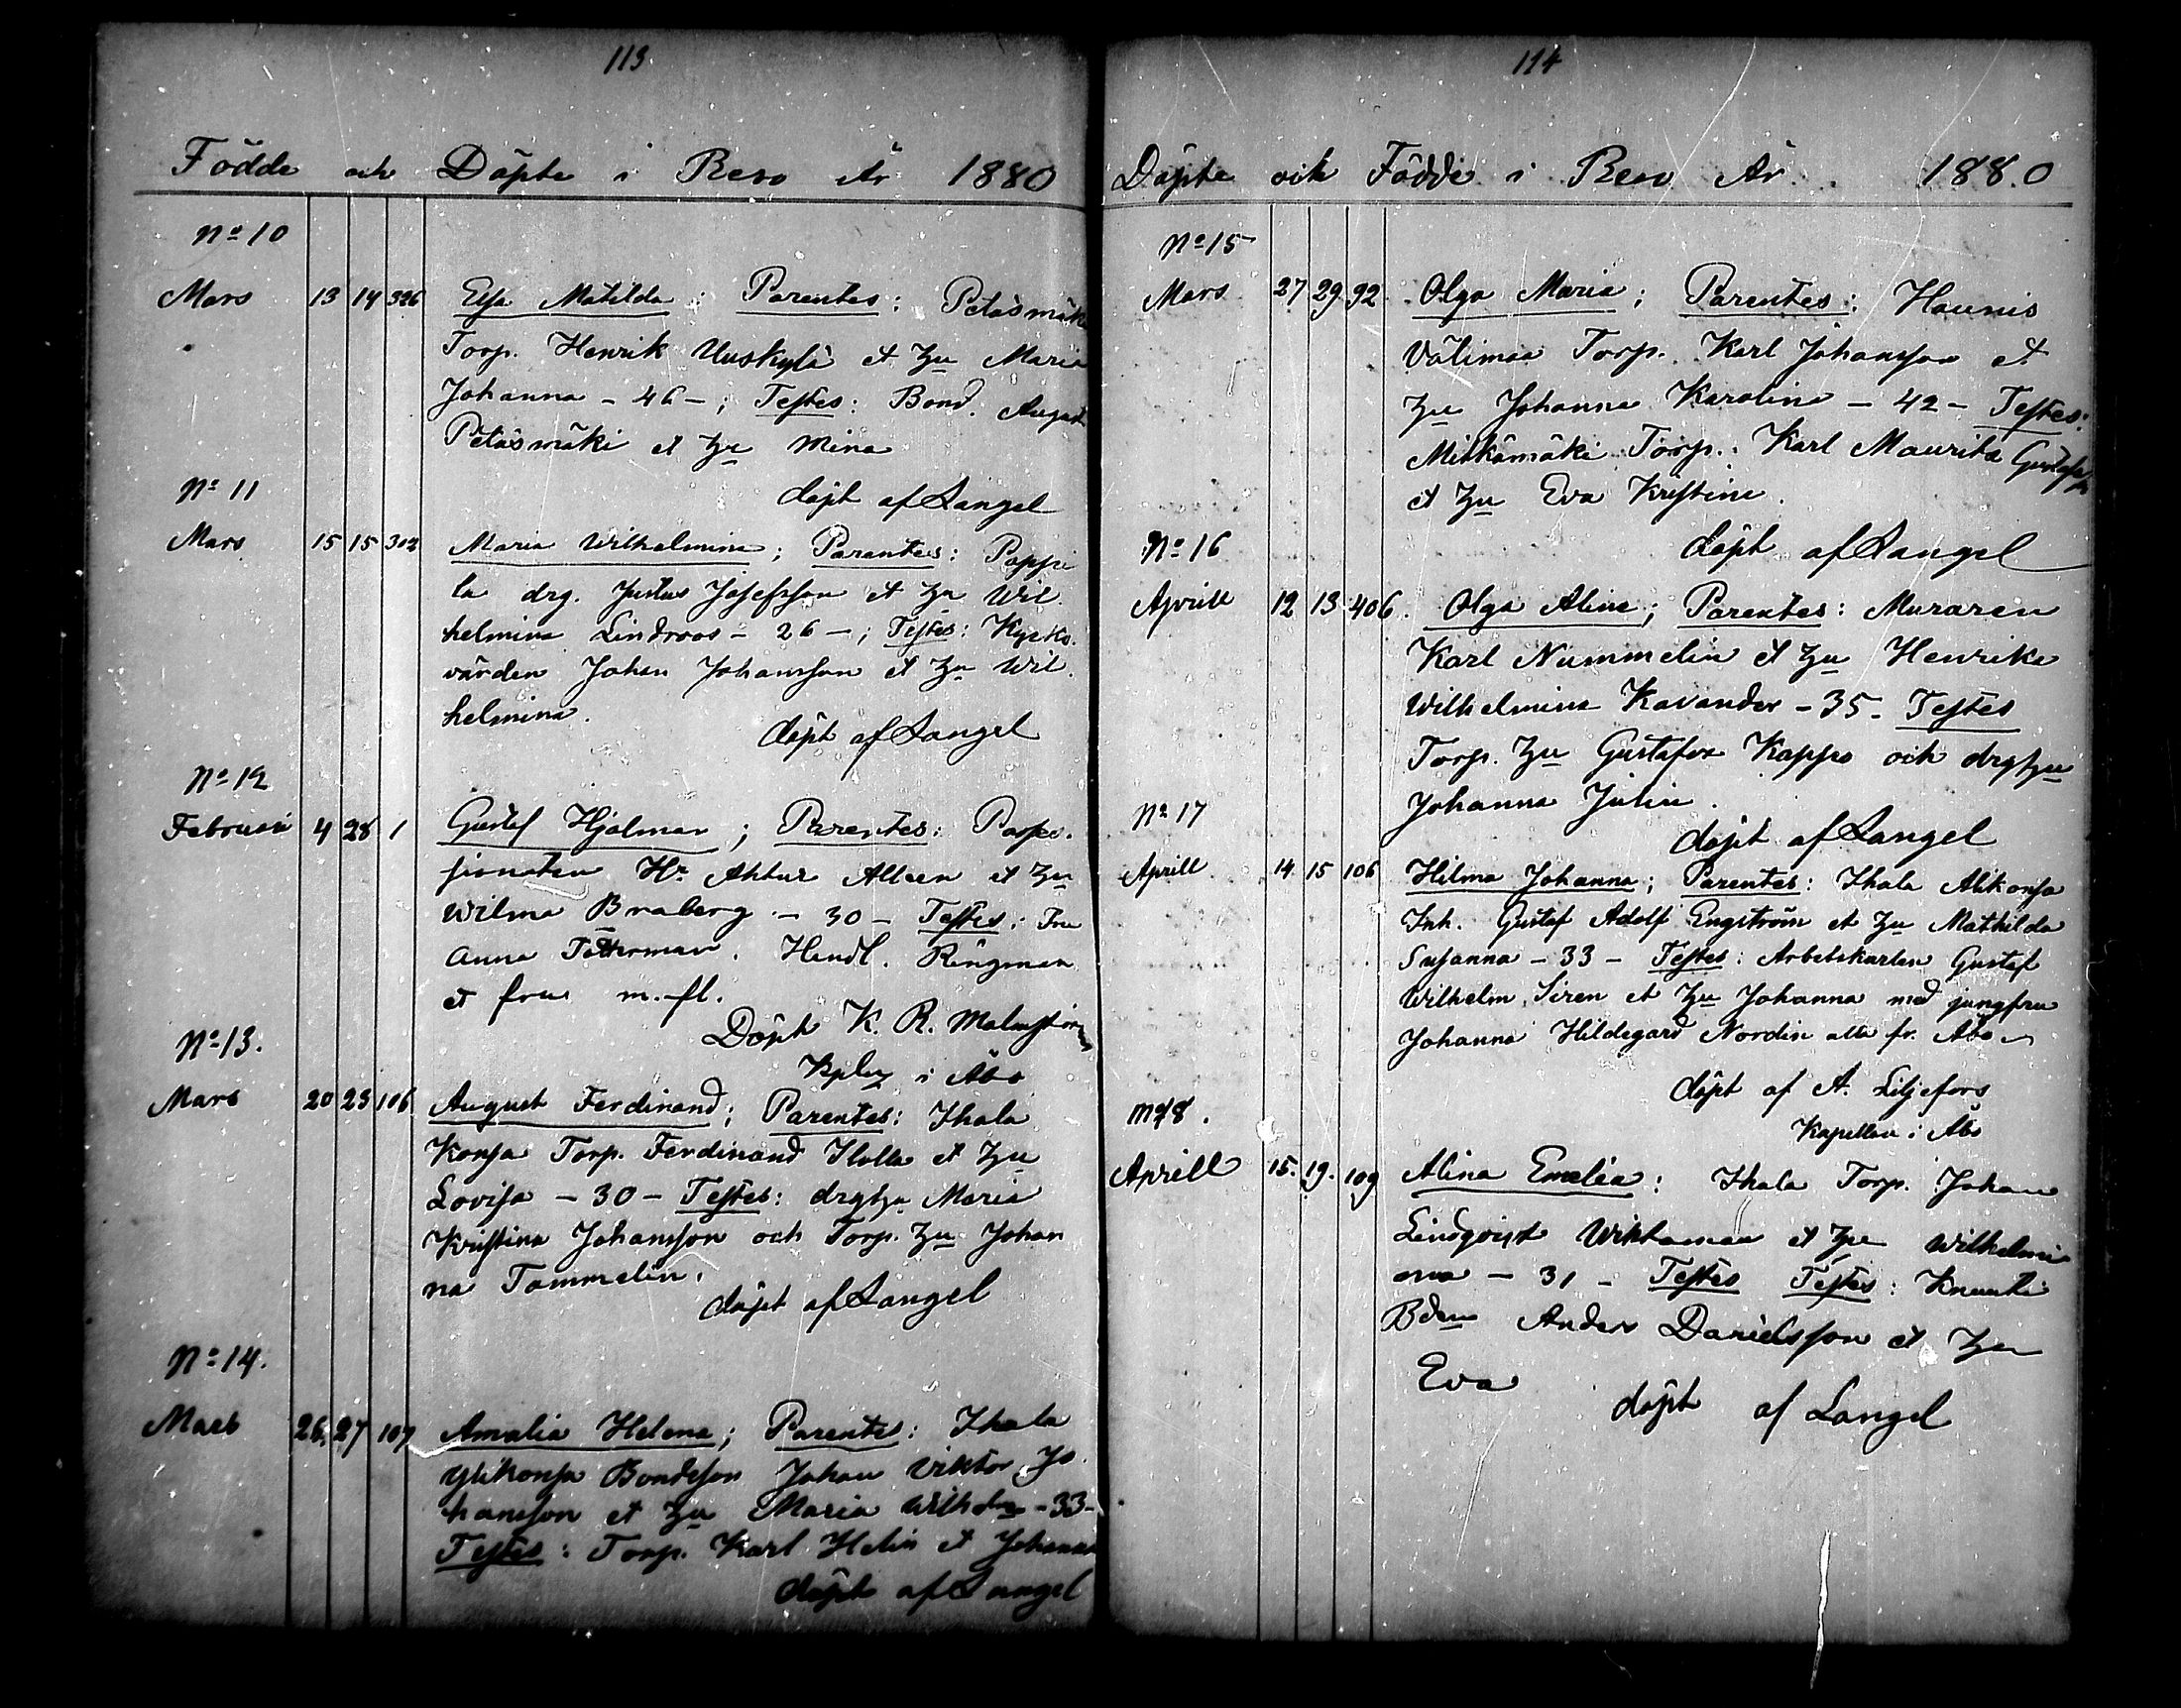 113
Födde och Döpte i Reso År 1880
No 10
Mars 13 14 326 Elsa Matilda; Parentes: Petäsmäki
Torp. Henrik Uuskylä et hu Maria
Johanna - 46 -; Testes: Bond. August
Petäsmäki et hu Mina
döpt af Langel
No 11
Mars 15 15 302 Maria Wilhelmina; Parentes: Poppi
la drg. Justus Josefsson et hu Wil
helmina Lindroos - 26 -; Testes: Kyrko
värden Johan Johansson et hu Wil
helmina.
döpt af Langel
No 12
Februari 4 28 1 Gustaf Hjalmar; Parentes:
Hr. Ahtur et hu
Wilma Braberg - 30 - Testes: Fru
Anna Tötterman. Handl. Ringman
et fru m. fl.
Döpt K. R. Malmström
i Åbo
No 13.
Mars 20 23 106 August Ferdinand; Parentes: Ihala
Konsa Torp. Ferdinand et hu
Lovisa - 30 - Testes: drghu Maria
Kristina Johansson och Torp. hu Johan
na Tammelin.
döpt af Langel
No 14.
Mars 26 27 107 Amalia Helena; Parentes: Ihala
Ylikonsa Bondeson Johan Viktor Jo
hansson et hu Maria Wilhelm - 33 -
Testes: Torp. Karl Helin et Johanna
döpt af Langel
114
Döpte och Födde i Reso År 1880
No 15
Mars 27 29 92 Olga Maria; Parentes: Haunis
Välimaa Torp. Karl Johansson et
hu Johanna Karolina - 42 - Testes:
Mitkämäki Torp. Karl Maurits Gustafsson
et hu Eva Kristina.
döpt af Langel
No 16
Aprill 12 13 406. Olga Alina; Parentes: Muraren
Karl Nummelin et hu Henrika
Wilhelmina Kavander - 35 - Testes
Torp. hu Gustafva Kappo och drghu
Johanna Julin.
döpt af Langel
No 17
Aprill 14 15 106 Hilma Johanna; Parentes: Ihala Alikonsa
Inh. Gustaf Adolf Engström et hu Mathilda
Susanna - 33 - Testes: Arbetskarlen Gustaf
Wilhelm Siren et hu Johanna med jungfru
Johanna Hildegard Nordin alla fr. Åbo
döpt af A. Liljefors
Kapellan i Åbo
No 18.
Aprill 15. 19. 109 Alina Emelia: Ihala Torp. Johan
Lindqvist et hu Wilhelmi
na - 31 - Testes Testes: Knuuti
Bden Anders Danielsson et hu
Eva
döpt af Langel